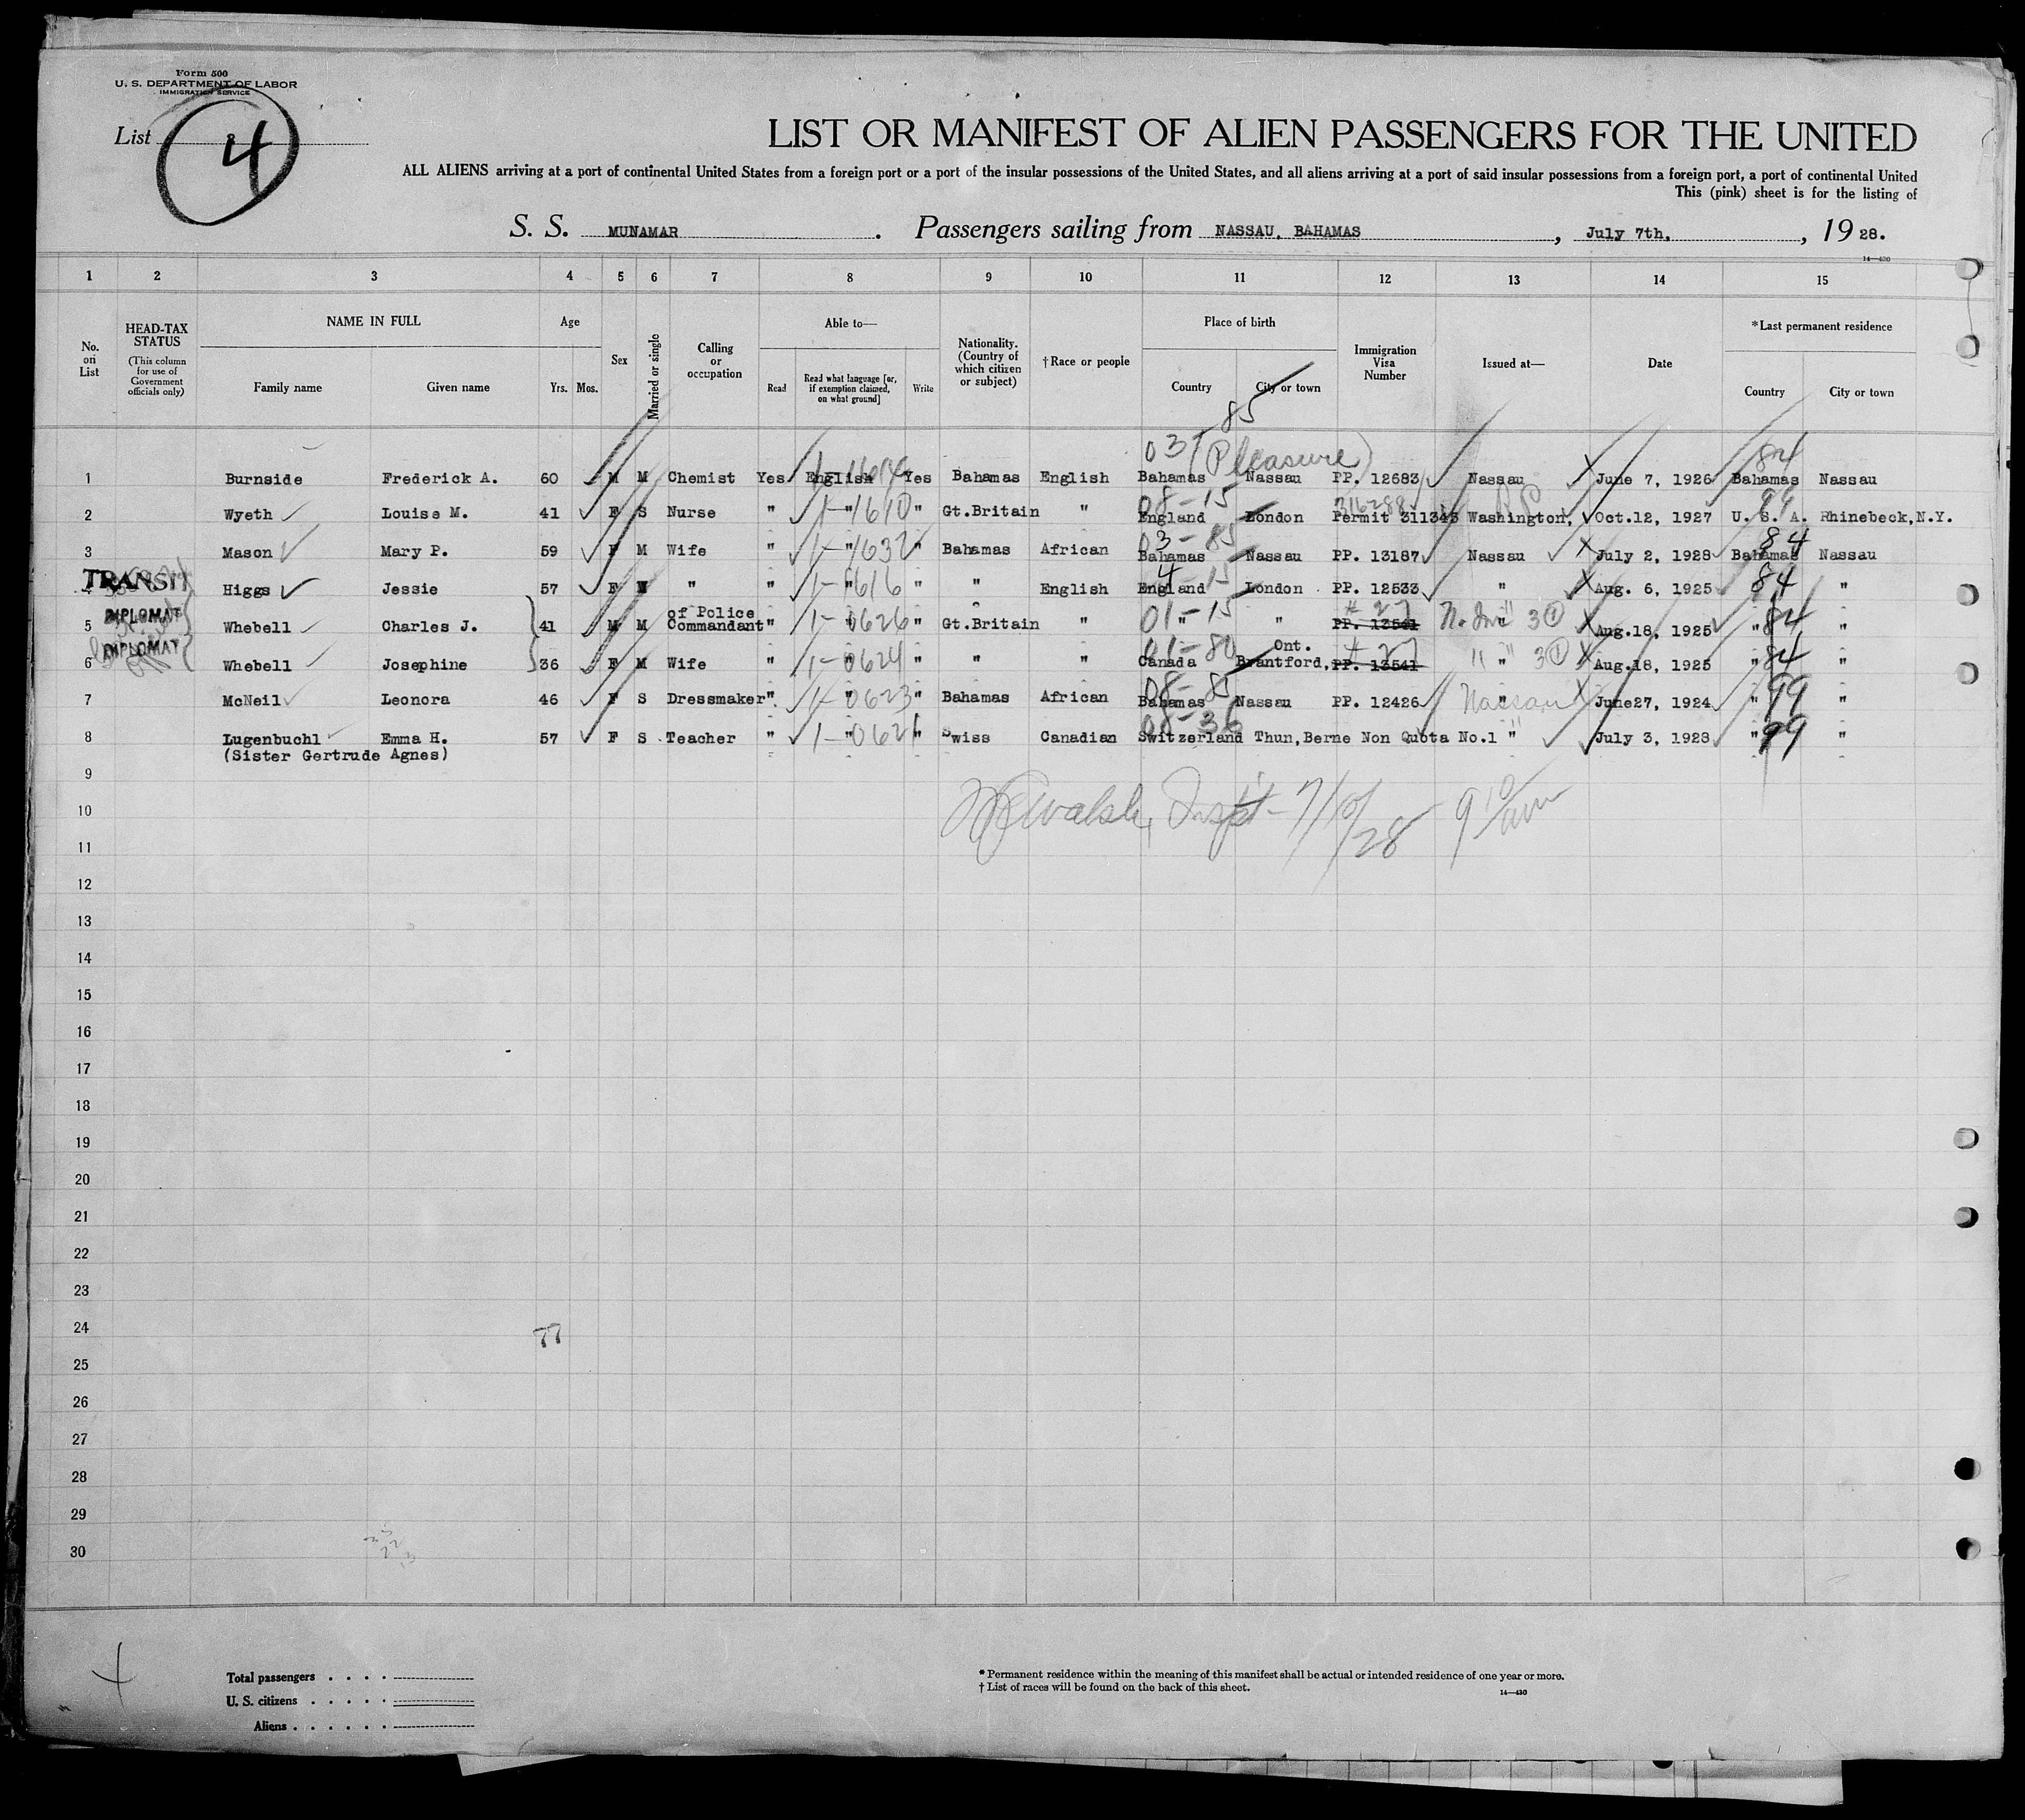 Form 500
U. S. DEPARTMENT OF LABOR
IMMIGRATION SERVICE
List 4
LIST OR MANIFEST OF ALIEN PASSENGERS FOR THE UNITED
ALL ALIENS arriving at a port of continental United States from a foreign port or a port of the insular possessions of the United States, and all aliens arriving at a port of said insular possessions from a foreign port, a port of continental United
This (pink) sheet is for the listing of
S. S. MUNAMAR. Passengers sailing from NASSAU, BAHAMAS, July 7th, , 1928.
14—430
1 2 3 4 5 6 7 8 9 10 11 12 13 14 15
No. on List
HEAD-TAX STATUS (This column for use of Government officials only)
NAME IN FULL
Family name Given name
Age
Yrs. Mos.
Sex
Married or single
Calling or occupation
Able to—
Read Read what language [or, if exemption claimed, on what ground] Write
Nationality. (Country of which citizen or subject)
†Race or people
Place of birth
Country City or town
Immigration Visa Number
Issued at—
Date
*Last permanent residence
Country City or town
03 - 85 (Pleasure) 84
1 Burnside Frederick A. 60 M M Chemist Yes English Yes Bahamas English Bahamas Nassau PP. 12683 Nassau June 7, 1926 Bahamas Nassau
08-15 316288 99
2 Wyeth Louise M. 41 F S Nurse " " 1-1610 " Gt.Britain " England London Permit 311343 Washington, Oct.12, 1927 U. S. A. Rhinebeck,N.Y.
03-85 84
3 Mason Mary P. 59 F M Wife " " 1-1632 " Bahamas African Bahamas Nassau PP. 13187 Nassau July 2, 1928 Bahamas Nassau
TRANSIT
4-15 84
4 Higgs Jessie 57 F M " " " 1-1616 " " English England London PP. 12533 " Aug. 6, 1925 "
DIPLOMAT
01-15 # 27 84
5 Whebell Charles J. 41 M M Commandant of Police " " 1-0626 " Gt.Britain " " " PP. 13541 " 3 1 Aug.18, 1925 " "
DIPLOMAT
01-80 # 27 84
6 Whebell Josephine 36 F M Wife " " 1-0624 " " " Canada Brantford, Ont. PP. 13541 " " 3 1 Aug.18, 1925 " "
08-85 99
7 McNeil Leonora 46 F S Dressmaker " " 1-0623 " Bahamas African Bahamas Nassau PP. 12426 Nassau " June27, 1924 " "
08-36 99
8 Lugenbuchl Emma H. 57 F S Teacher " " 1-0621 " Swiss Canadian Switzerland Thun,Berne Non Quota No.1 " July 3, 1928 " "
(Sister Gertrude Agnes)
9
Walsh, Insp't - 7/10/28 9 10 am
10
11
12
13
14
15
16
17
18
19
20
21
22
23
24
25
26
27
28
29
30
Total passengers . . . .
U. S. citizens . . . . .
Aliens . . . . . .
* Permanent residence within the meaning of this manifest shall be actual or intended residence of one year or more.
† List of races will be found on the back of this sheet.
14—430